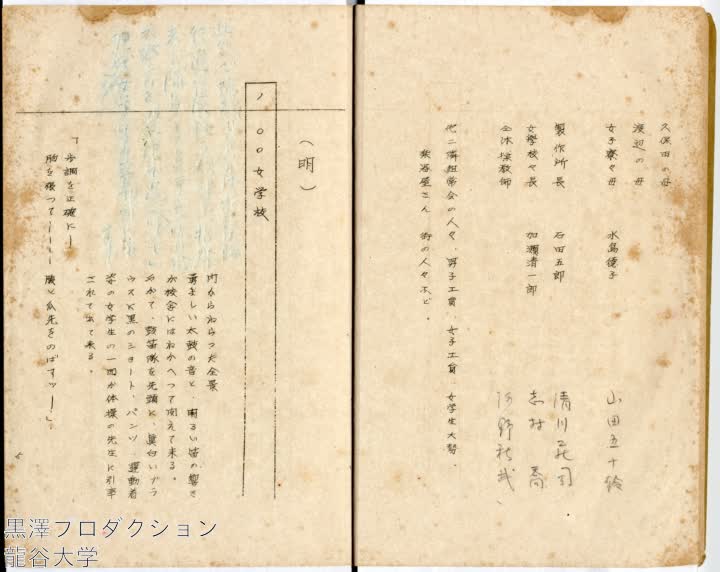 久保田の母
渡辺の母
女子寮々母 水島徳子 山田五十鈴
製作所長 石田五郎 清川荘司
女學校々長 加瀬清一郎 志村 喬
仝体操教師 河野秋武
他ニ隣組常会の人々、男子工員、女子工員、女学生大勢、
染谷屋さん 街の人々など。
(明)
1 〇〇女学校
門からねらつた全景
勇ましい太鼓の音と、明るい笛の響き
が校舎にはねかへつて聞えて来る。
やがて、鼓笛隊を先頭に、真白いブラ
ウスに黒のショート・パンツ、運動着
姿の女学生の一団が体操の先生に引率
されて出て来る。
「歩調を正確に!
胸を張つて―――― 膝と爪先をのばすッ!」
黒澤プロダクション
龍谷大学